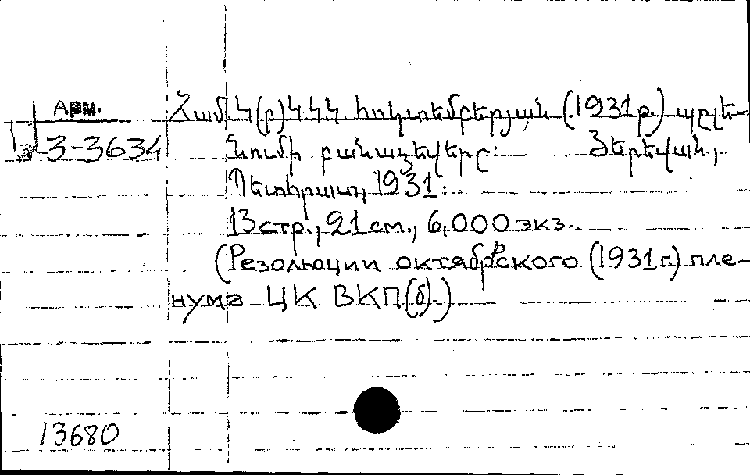 АРМ.
Համ Կ(բ)ԿԿԿ հոկտեմբերյան (1931թ.) պլե-
3-3634
նումի բանաձեվերը: Յերեվան,
Պետհրատ, 1931.
13 стр., 21 см., 6,000 экз.
(Резолюции октябрьского (1931г.) пле-
нума ЦК ВКП(б).)
13680